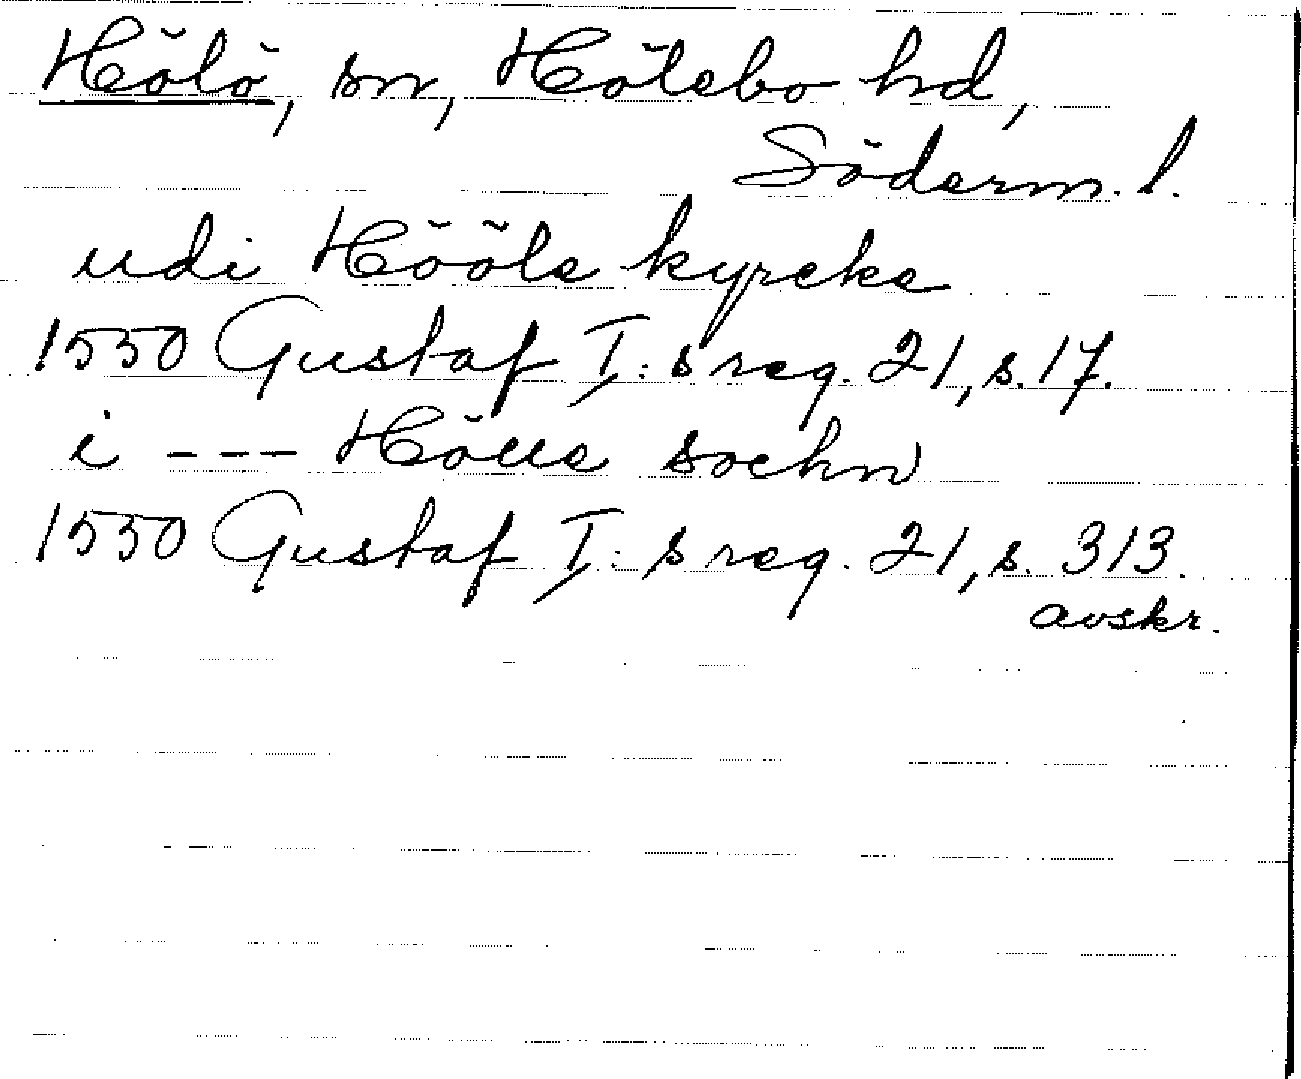 Hölö, sn, Hölebo hd,
Söderm. l.
udi Hööle kyrcke
1550 Gustaf I:s reg. 21, s. 17.
i --- Hölle sochn
1550 Gustaf I:s reg. 21, s. 313.
avskr.